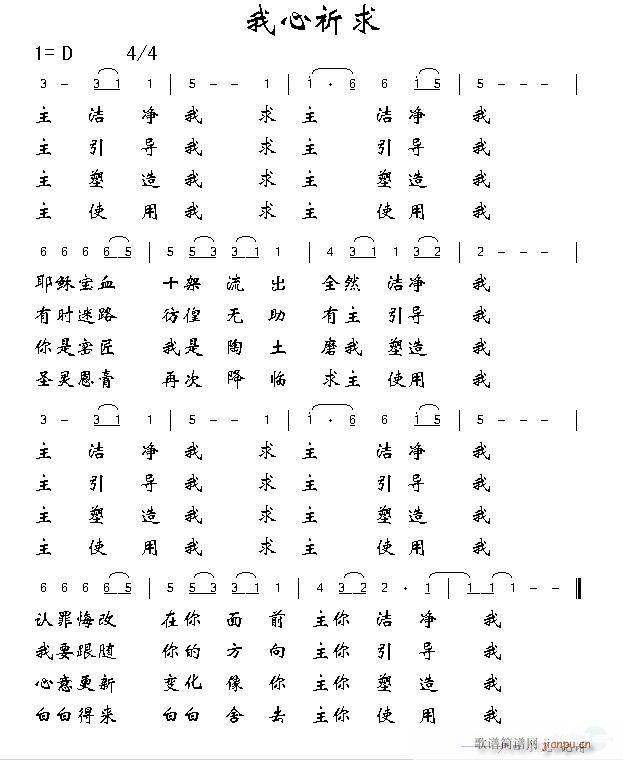 我心祈求
1= D 4/4
3 - 3 1 1 | 5 - - 1 | 1 · 6 6 1 5 | 5 - - - |
主 洁 净 我 求 主 洁 净 我
主 引 导 我 求 主 引 导 我
主 塑 造 我 求 主 塑 造 我
主 使 用 我 求 主 使 用 我
6 6 6 6 5 | 5 5 3 3 1 1 | 4 3 1 1 3 2 | 2 - - - |
耶稣宝血 十架 流 出 全然 洁净 我
有时迷路 彷徨 无 助 有主 引导 我
你是窑匠 我是 陶 土 磨我 塑造 我
圣灵恩膏 再次 降 临 求主 使用 我
3 - 3 1 1 | 5 - - 1 | 1 · 6 6 1 5 | 5 - - - |
主 洁 净 我 求 主 洁 净 我
主 引 导 我 求 主 引 导 我
主 塑 造 我 求 主 塑 造 我
主 使 用 我 求 主 使 用 我
6 6 6 6 5 | 5 5 3 3 1 1 | 4 3 2 2 · 1 | 1 1 1 - - ‖
认罪悔改 在你 面 前 主你 洁 净 我
我要跟随 你的 方 向 主你 引 导 我
心意更新 变化 像 你 主你 塑 造 我
白白得来 白白 舍 去 主你 使 用 我
歌谱简谱网
jianpu.cn